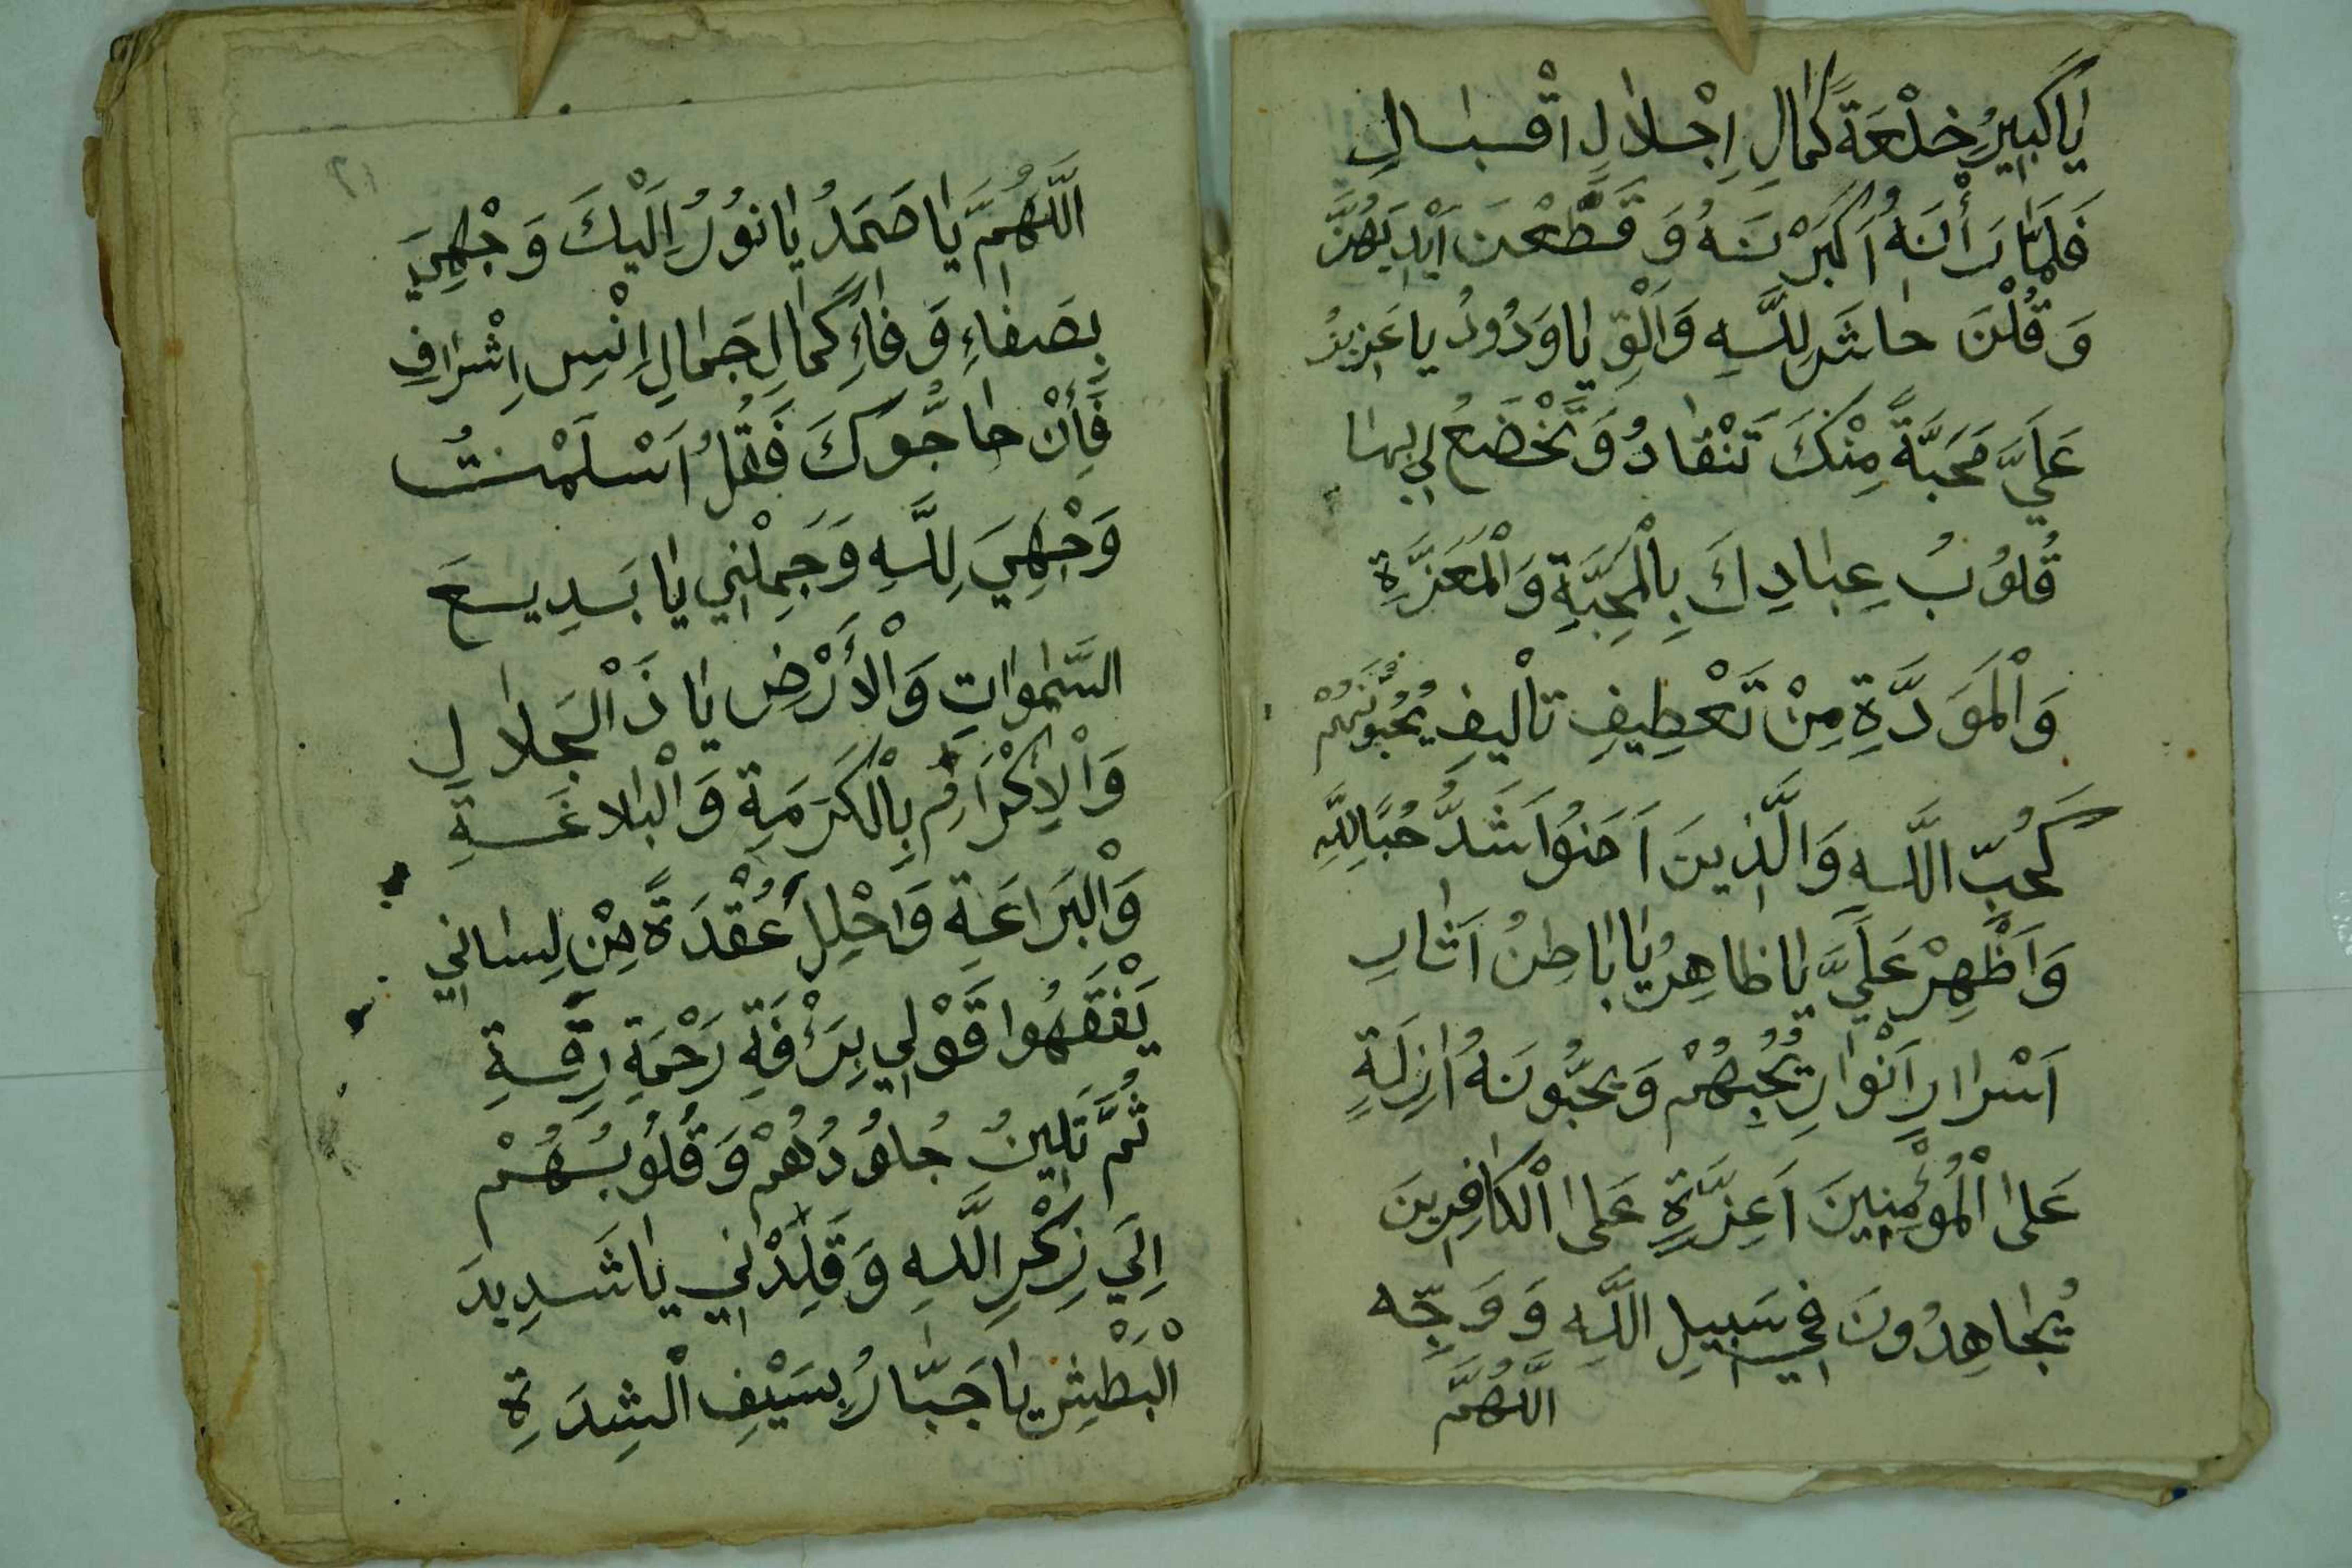 يَا كَبِيرُ خِلْعَةً كَمَالِ اِجْلَالِ اِقْبَالِ
فَلَمَّا رَأَيْنَهُ اَكْبَرْنَهُ وَقَطَّعْنَ اَيْدِيَهُنَّ
وَقُلْنَ حَاشَ لِلَّهِ وَاَلْقِ يَا وَدُودُ يَا عَزِيزُ
عَلَيَّ مَحَبَّةً مِنْكَ تَنْقَادُ وَتَخْضَعُ لِي بِهَا
قُلُوبُ عِبَادِكَ بِالْمَحَبَّةِ وَالْمَعَزَّةِ
وَالْمَوَدَّةِ مِنْ تَعْطِيفِ تَأْلِيفِ يُحِبُّونَهُمْ
كَحُبِّ اللَّهِ وَالَّذِينَ اَمَنُوا اَشَدُّ حُبًّا لِلَّهِ
وَاَظْهِرْ عَلَيَّ يَا ظَاهِرُ يَا بَاطِنُ اَثَارِ
اَسْرَارِ اَنْوَارِ يُحِبُّهُمْ وَيُحِبُّونَهُ اَذِلَّةٍ
عَلَى الْمُؤْمِنِينَ اَعِزَّةٍ عَلَى الْكَافِرِينَ
يُجَاهِدُونَ فِي سَبِيلِ اللَّهِ وَوَجِّه
اللَّهُمَّ
اللَّهُمَّ يَا صَمَدُ يَا نُورُ اِلَيْكَ وَجْهِيَ
بِصَفَاءِ وَفَاءِ كَمَالِ جَمَالِ اِنْسِ اِشْرَافِ
فَأِنْ حَاجُّوكَ فَقُلْ اَسْلَمْتُ
وَجْهِيَ لِلَّهِ وَجَمِلْنِي يَا بَدِيعَ
السَّمٰوَاتِ وَالْأَرْضِ يَا ذَ الْجَلَالِ
وَالْاِكْرَامِ بِالْكَرَمَةِ وَالْبَلَاغَةِ
وَالْبَرَاعَةِ وَاحْلِلْ عُقْدَةً مِنْ لِسَانِي
يَفْقَهُوا قَوْلِي بِرَئْفَةِ رَحْمَةِ رِقَّةِ
ثُمَّ تَلِينُ جُلُودُهُمْ وَقُلُوبُهُمْ
اِلَي ذِكْرِ اللَّهِ وَقَلِّدْنِي يَا شَدِيدَ
الْبَطْشِ يَا جَبَّارُ بِسَيْفِ الْشِدَةِ